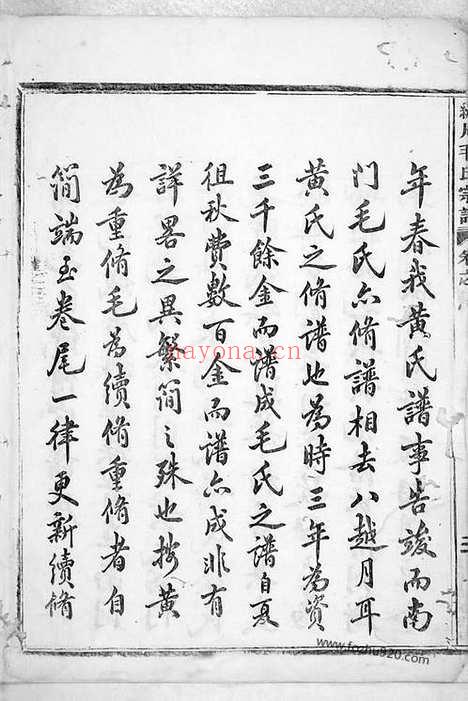 年春我黄氏譜事告竣而南
門毛氏亦修譜相去八越月耳
黄氏之修譜也為時三年為資
三千餘金而譜成毛氏之譜自夏
徂秋費數百金而譜亦成非有
詳畧之異繁簡之殊也抄黄
為重脩毛為續脩重脩者自
簡端至卷尾一律更新續脩
毛氏宗譜
nayona.cn
www.fozhu920.com